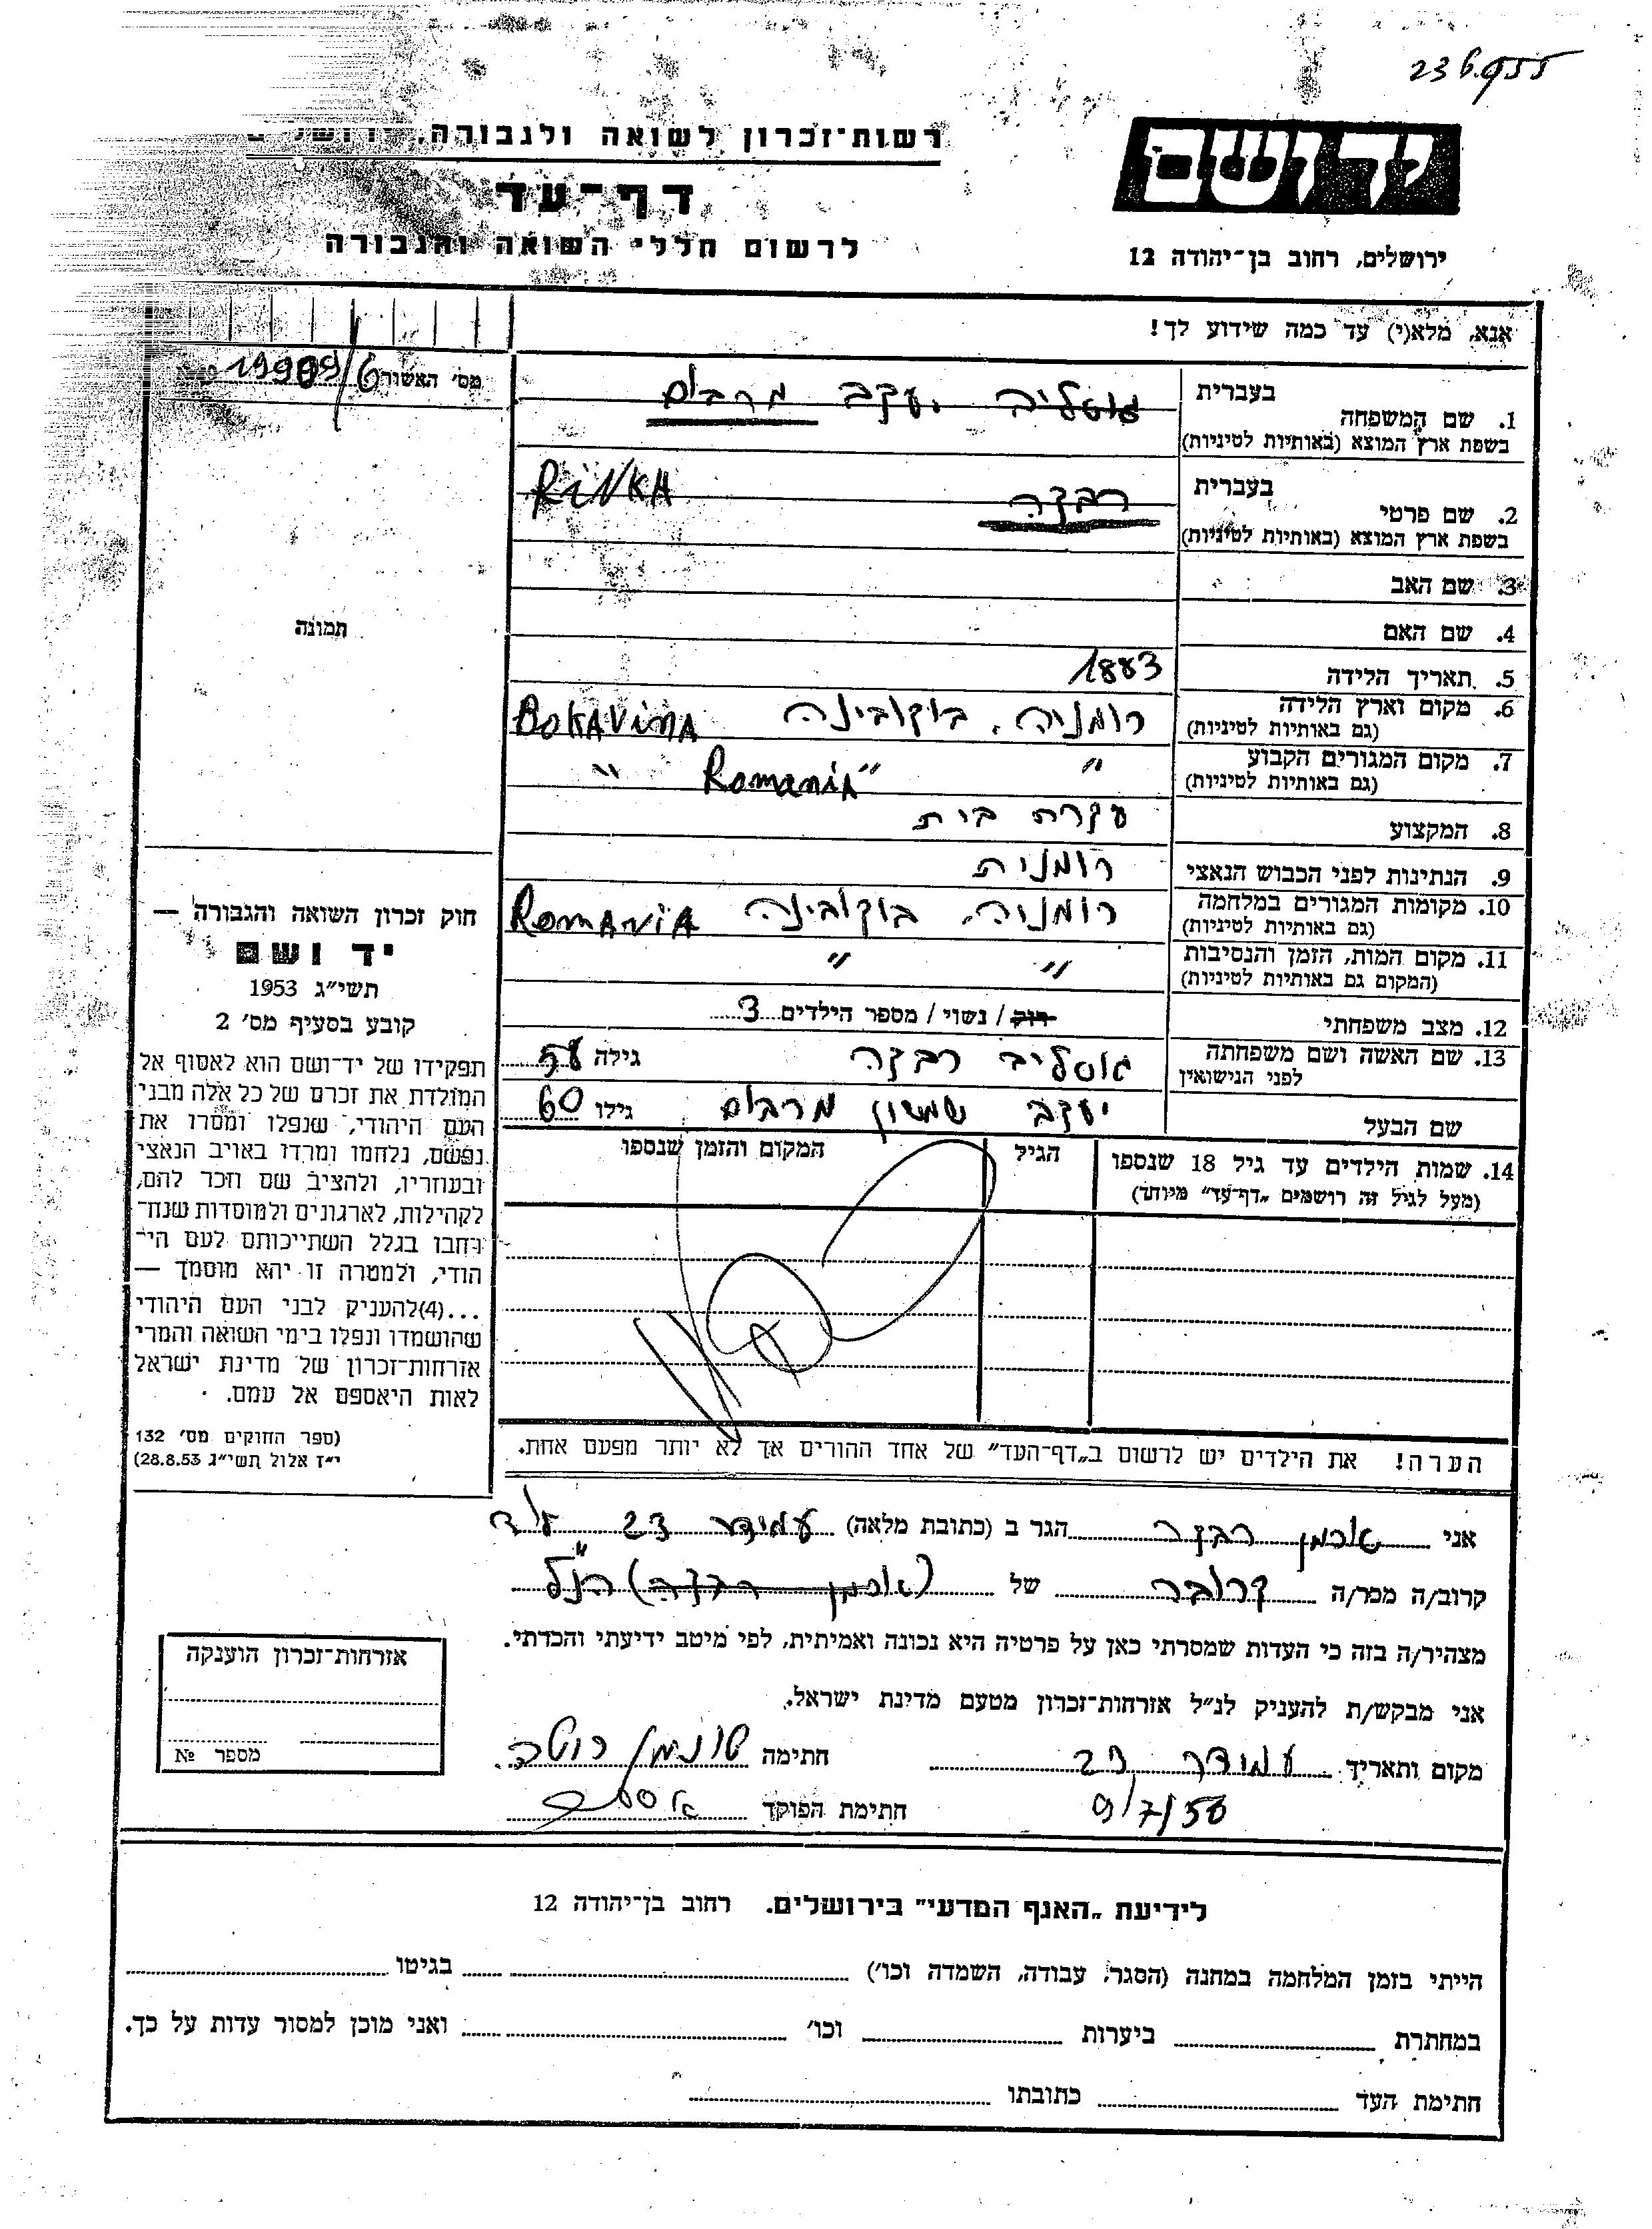 23 6.955
רשות־זכרון לשואה ולגבורה, ירושלים
יד ושם
דף־עד
לרשום חללי השואה והגבורה
ירושלים, רחוב בן־יהודה 12
אנא, מלא(י) עד כמה שידוע לך!
מס׳ האשור 19909/6
1. שם המשפחה
בעברית יעקב מרבוס
בשפת ארץ המוצא (באותיות לטיניות)
2. שם פרטי
בעברית רבקה RiNKA
בשפת ארץ המוצא (באותיות לטיניות)
3. שם האב
4. שם האם
תמונה
5. תאריך הלידה 1883
6. מקום וארץ הלידה רומניה. בוקובינה BOKAViNA
(גם באותיות לטיניות)
7. מקום המגורים הקבוע " Romania " "
(גם באותיות לטיניות)
8. המקצוע עקרת בית
9. הנתינות לפני הכבוש הנאצי רומנית
10. מקומות המגורים במלחמה רומניה. בוקובינה ROMANiA
(גם באותיות לטיניות)
11. מקום המות, הזמן והנסיבות " "
(המקום גם באותיות לטיניות)
12. מצב משפחתי רוק / נשוי / מספר הילדים 3
13. שם האשה ושם משפחתה רבקה גילה
לפני הנישואין
שם הבעל יעקב שמשון מרבוס גילו 60
14. שמות הילדים עד גיל 18 שנספו הגיל המקום והזמן שנספו
(מעל לגיל זה רושמים „דף־עד״ מיוחד)
הערה! את הילדים יש לרשום ב„דף־העד״ של אחד ההורים אך לא יותר מפעם אחת.
חוק זכרון השואה והגבורה —
יד ושם
תשי״ג 1953
קובע בסעיף מס׳ 2
תפקידו של יד־ושם הוא לאסוף אל
המולדת את זכרם של כל אלה מבני
העם היהודי, שנפלו ומסרו את
נפשם, נלחמו ומרדו באויב הנאצי
ובעוזריו, ולהציב שם וזכר להם,
לקהילות, לארגונים ולמוסדות שנח־
רבו בגלל השתייכותם לעם הי־
הודי, ולמטרה זו יהא מוסמך —
...(4)להעניק לבני העם היהודי
שהושמדו ונפלו בימי השואה והמרי
אזרחות־זכרון של מדינת ישראל
לאות היאספם אל עמם.
(ספר החוקים מס׳ 132
י״ז אלול תשי״ג 28.8.53)
אני רבקה הגר ב (כתובת מלאה) עמידר 23 לוד
קרוב/ה מכר/ה קרובה של (רבקה) הנ״ל
מצהיר/ה בזה כי העדות שמסרתי כאן על פרטיה היא נכונה ואמיתית, לפי מיטב ידיעתי והכרתי.
אני מבקש/ת להעניק לנ״ל אזרחות־זכרון מטעם מדינת ישראל.
מקום ותאריך עמידר 23 חתימה
9/7/56 חתימת הפוקד
אזרחות־זכרון הוענקה
מספר №
לידיעת „האגף המדעי״ בירושלים. רחוב בן־יהודה 12
הייתי בזמן המלחמה במחנה (הסגר, עבודה, השמדה וכו׳) בגיטו
במחתרת ביערות וכו׳ ואני מוכן למסור עדות על כך.
חתימת העד כתובתו